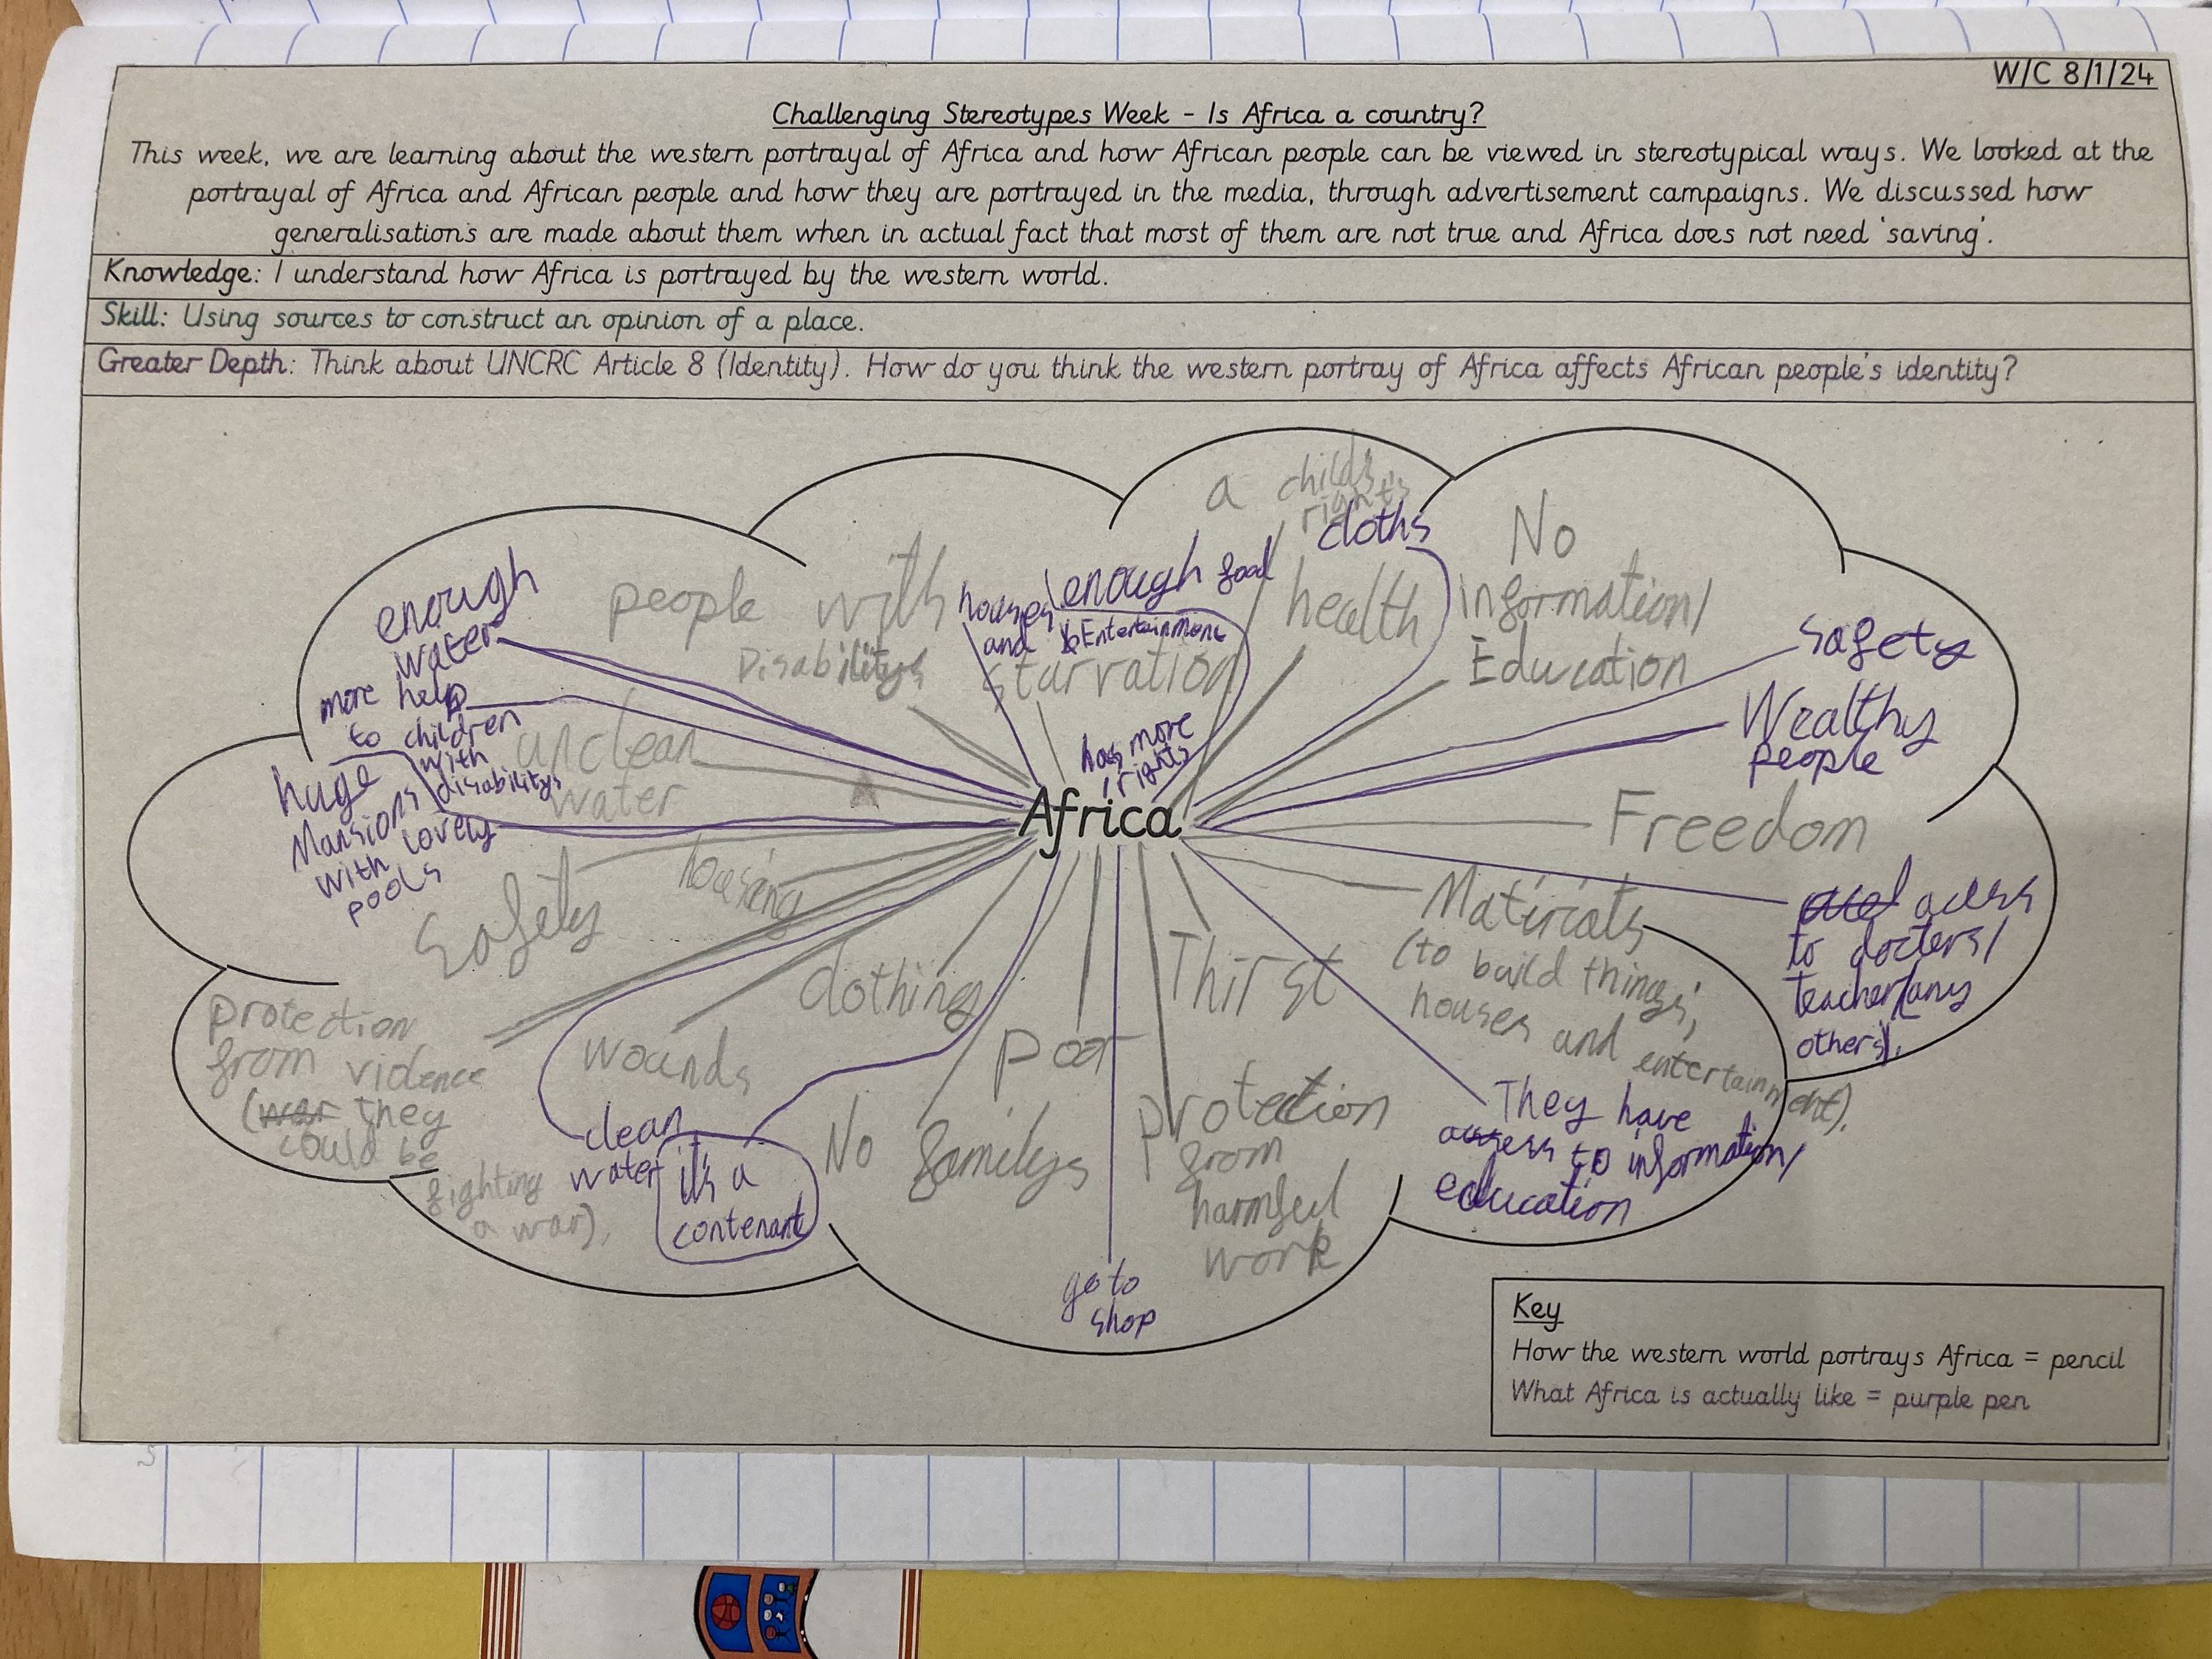 W/C 8/1/24
Challenging Stereotypes Week - Is Africa a country?
This week, we are learning about the western portrayal of Africa and how African people can be viewed in stereotypical ways. We looked at the
portrayal of Africa and African people and how they are portrayed in the media, through advertisement campaigns. We discussed how
generalisations are made about them when in actual fact that most of them are not true and Africa does not need 'saving'.
Knowledge: I understand how Africa is portrayed by the western world.
Skill: Using sources to construct an opinion of a place.
Greater Depth: Think about UNCRC Article 8 (Identity). How do you think the western portray of Africa affects African people's identity?
a childs
rights
cloths
No
information/
Education
enough
water
people with
Disabilitys
houses
and
enough food
& Entertainment
starvation
health
safety
more help
to children
with
disabilitys
unclean
water
has more
rights
Wealthy
people
huge
Mansions
with lovely
pools
Africa
Freedom
safety
housing
Matirials
(to build things,
houses and entertainment).
acess
to docters/
teacher/any
others).
protection
from vidence
(war they
could be
fighting
a war),
wounds
clothing
poor
Thirst
clean
water
it's a
contenant
No familys
protection
from
harmful
work
They have
access to information/
education
go to
shop
Key
How the western world portrays Africa = pencil
What Africa is actually like = purple pen